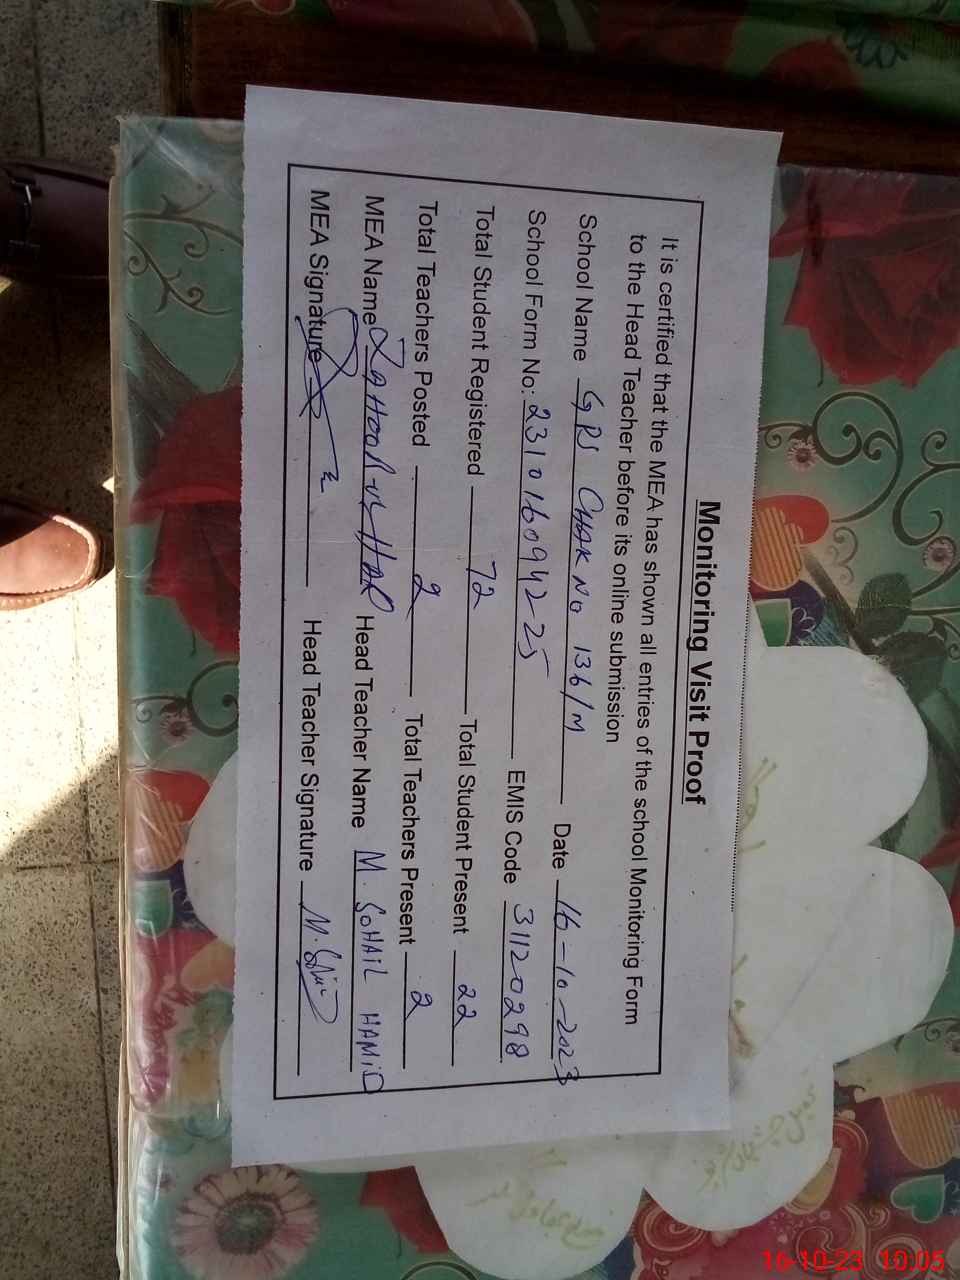 Monitoring Visit Proof
It is certified that the MEA has shown all entries of the school Monitoring Form
to the Head Teacher before its online submission
School Name GPS CHAK NO 136/M Date 16-10-2023
School Form No: 231016094225 EMIS Code 31120298
Total Student Registered 72 Total Student Present 22
Total Teachers Posted 2 Total Teachers Present 2
MEA Name ZAHOOR UL HAR Head Teacher Name M. SOHAIL HAMID
MEA Signature Head Teacher Signature
16-10-23 10:05